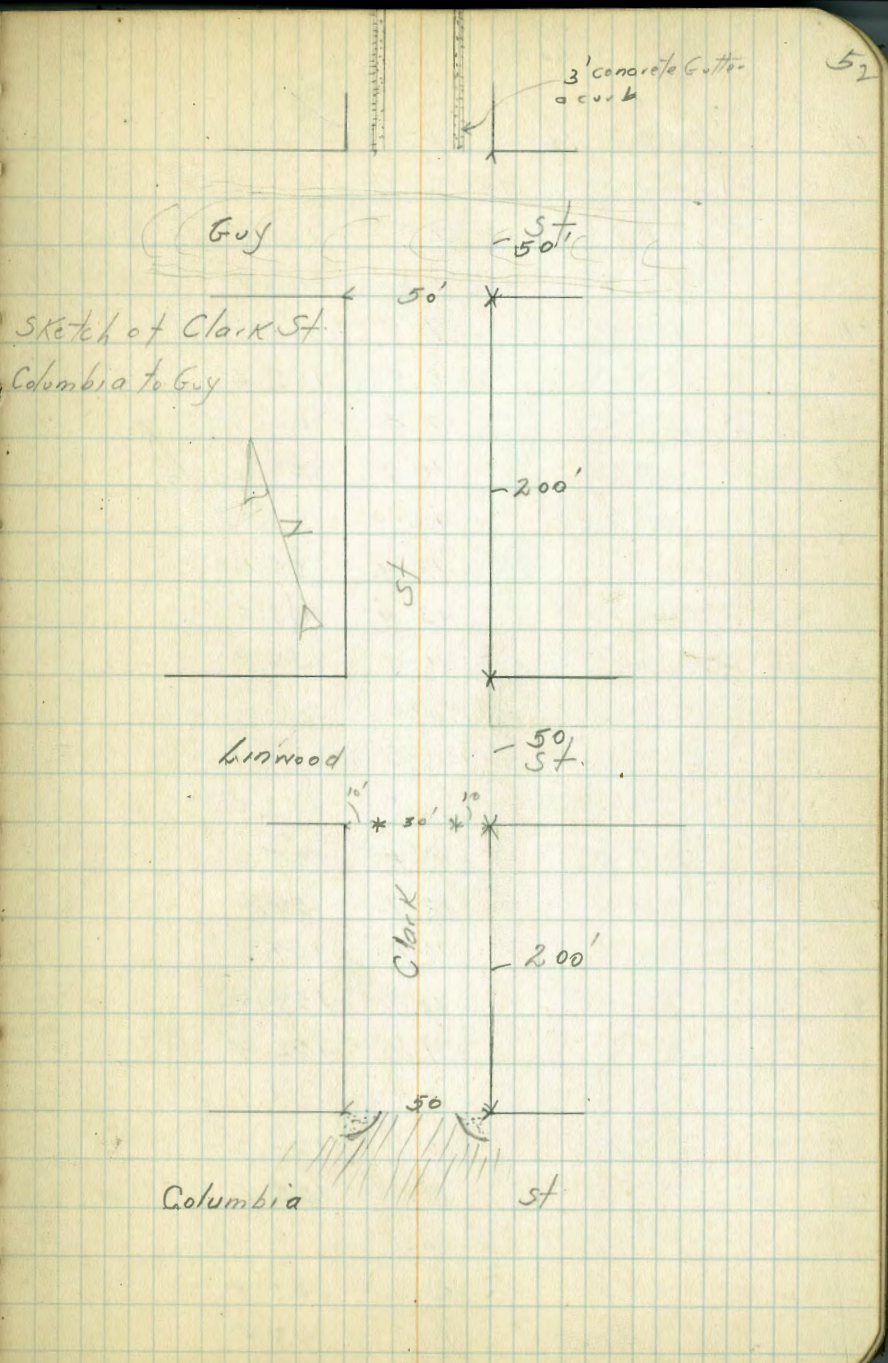 52
3' concrete Gutter
a curb
Guy St.
50'
50'
Sketch of Clark St.
Columbia to Guy
200'
N
St
50
Linwood St.
10' 30' 10
Clark
200'
50
Columbia St